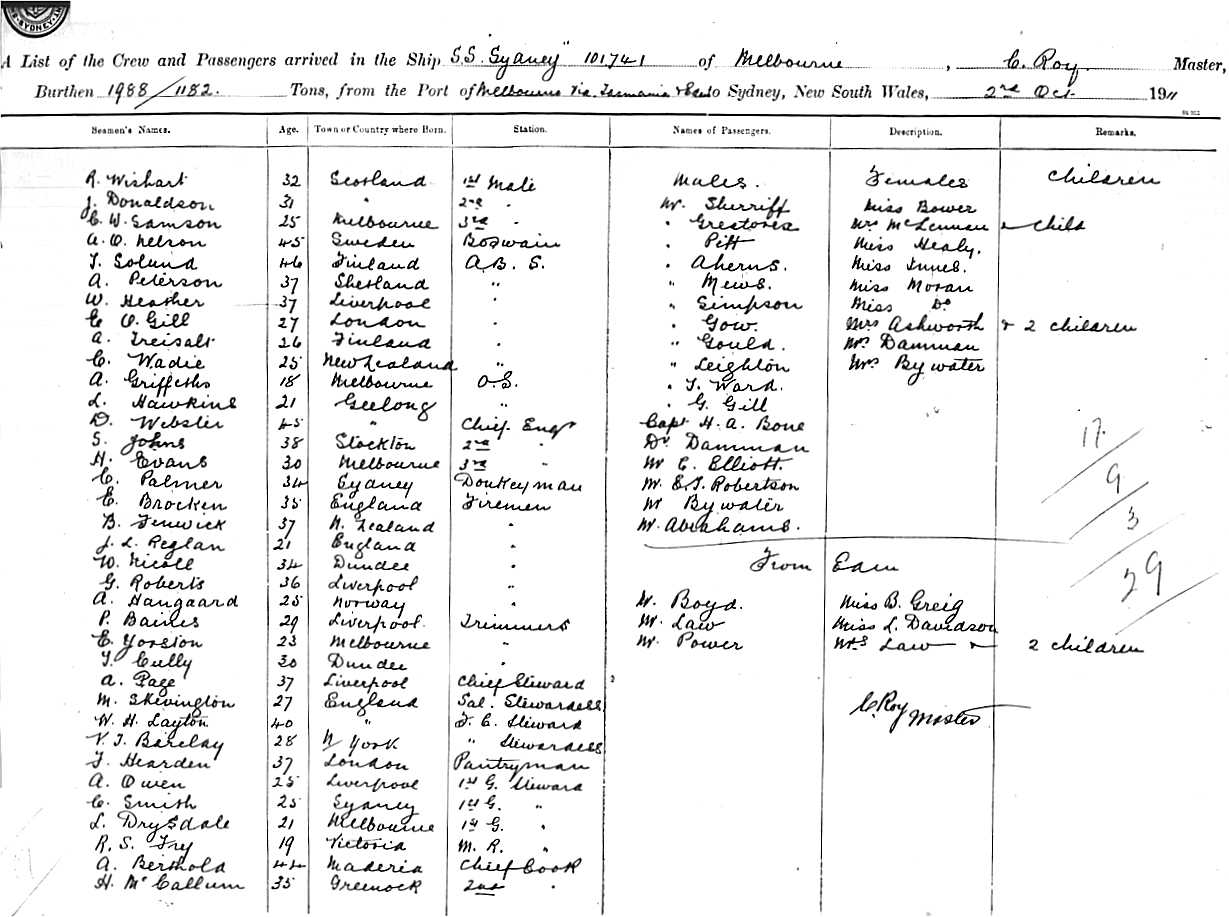 SYDNEY
A List of the Crew and Passengers arrived in the Ship S.S. Sydney" 101741 of Melbourne, C. Roy Master,
Burthen 1988/1182. Tons, from the Port of Melbourne via Tasmania & Eden to Sydney, New South Wales, 2nd Oct 1911
Seamen's Names. Age. Town or Country where Born. Station. Names of Passengers. Description. Remarks.
R. Wishart 32 Scotland 1st Mate Males. Females Children
J. Donaldson 31 " 2nd " Mr. Sherriff Miss Bower
C. W. Samson 25 Melbourne 3rd " " Mrs McLennan & Child
A. O. Nelson 45 Sweden Boswain " Pitt Miss Healy.
T. Solund 46 Finland A.B.S. " Aherns. Miss Innes.
A. Peterson 37 Shetland " " Mews. Miss Moran
W. Heather 37 Liverpool " " Simpson Miss Do
C O. Gill 27 London " " Gow. Mrs Ashworth & 2 children
A. Treisalt 26 Finland " " Gould. Mrs Damman
C. Wadie 25 New Zealand " " Leighton Mrs Bywater
A. Griffiths 18 Melbourne O.S. " T. Ward.
L. Hawkins 21 Geelong " " G. Gill
D. Webster 45 " Chief Engr Capt H. A. Bone
S. Johns 38 Stockton 2nd " Dr Damman 17
H. Evans 30 Melbourne 3rd " Mr C. Elliott.
C. Palmer 34 Sydney Donkeyman Mr. E. J. Robertson 9
C. Brocken 35 England Firemen Mr Bywater
B. Fenwick 37 N. Zealand " Mr. Abrahams. 3
J. L. Reglan 21 England "
W. Nicoll 34 Dundee " From Eden 29
G. Roberts 36 Liverpool "
A. Hangaard 25 Norway " Mr. Boyd. Miss B. Greig
P. Baines 29 Liverpool. Trimmers Mr. Law Miss L. Davidson
C. Yorston 23 Melbourne " Mr. Power Mrs Law & 2 children
T. Cully 30 Dundee "
A. Page 37 Liverpool Chief Steward
M. Skevington 27 England Sal. Stewardess
W. H. Layton 40 " F. C. Steward C. Roy Master
V. J. Barclay 28 N York " Stewardess
F. Hearden 37 London Pantryman
A. Owen 25 Liverpool 1st G. Steward
C. Smith 25 Sydney 1st G. "
L. Drysdale 21 Melbourne 1st G. "
R. S. Fry 19 Victoria M. R. "
A. Berthold 44 Maderia Chief Cook
H. McCallum 35 Greenock 2nd "